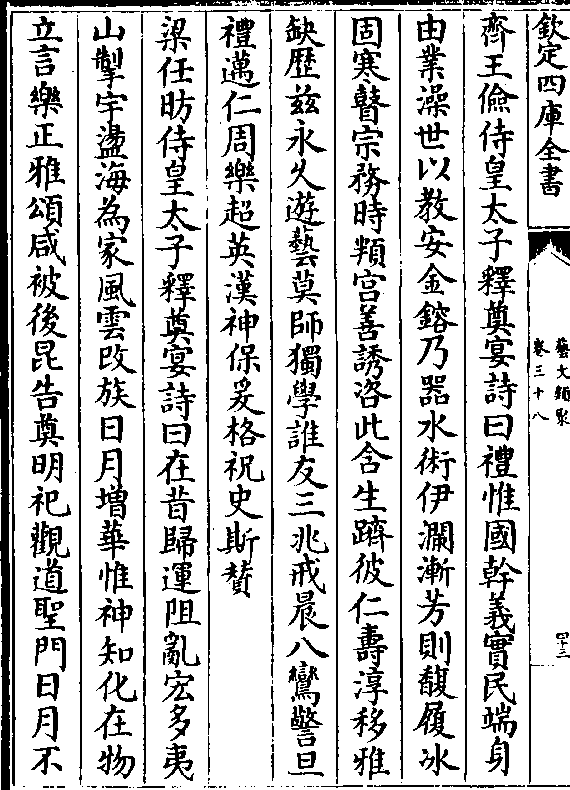 欽定四庫全書
藝文類聚
卷三十八
四十三
齊王儉侍皇太子釋奠宴詩曰禮惟國幹義實民端身
由業澡世以教安金鎔乃器水術伊瀾漸芳則馥履冰
固寒瞽宗務時頖宫善誘咨此含生躋彼仁壽淳移雅
缺歴兹永久遊藝莫師獨學誰友三兆戒晨八鸞警旦
禮邁仁周樂超英漢神保爰格祝史斯贊
梁任昉侍皇太子釋奠宴詩曰在昔歸運阻亂宏多夷
山掣宇盪海為家風雲改族日月增華惟神知化在物
立言樂正雅頌咸被後昆告奠明祀觀道聖門日月不